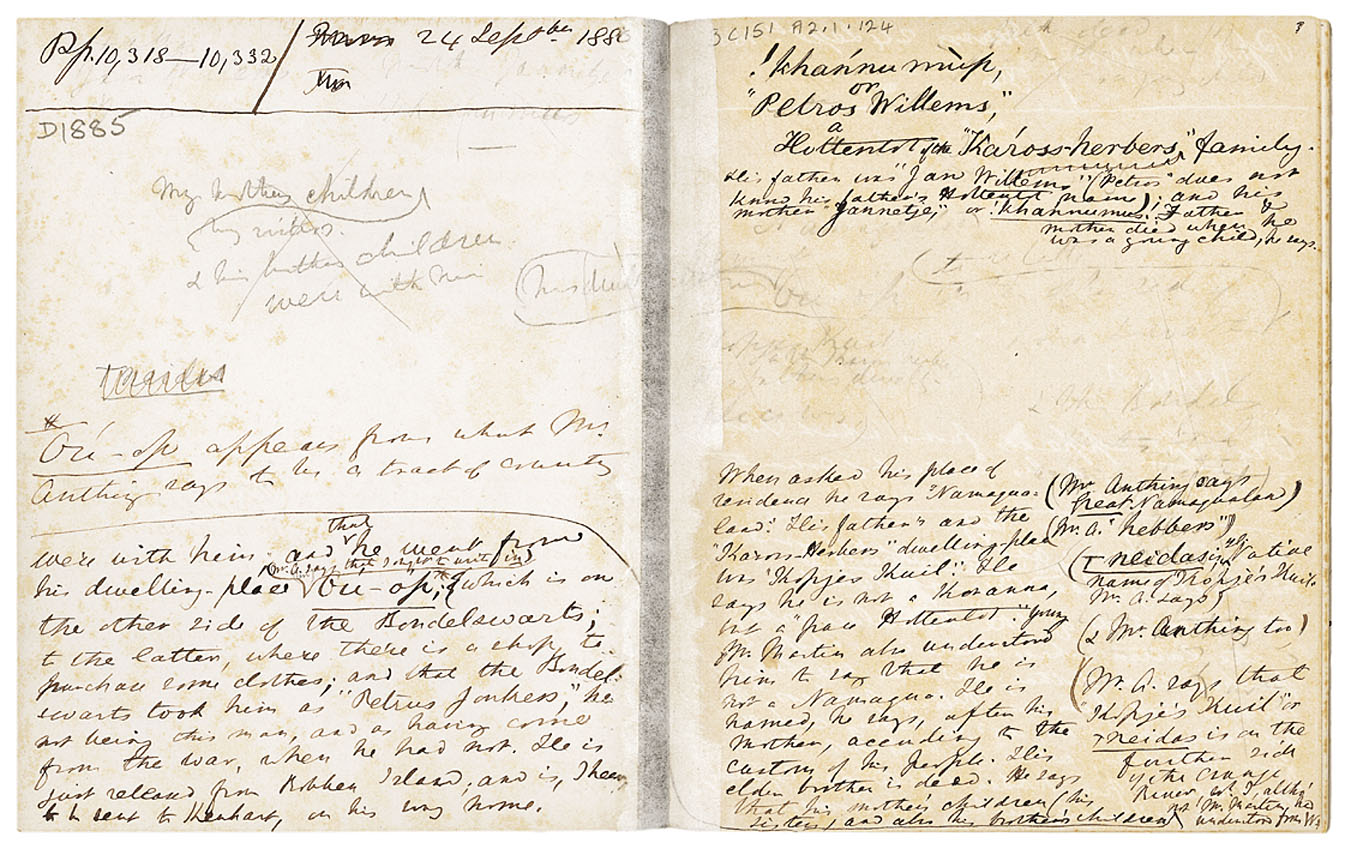 Pp. 10,318—10,332
24 Septbr 188
D1885
My brothers children
his sisters
& his brothers children
were with him
Ou-op appears from what Mr.
Anthing says to be a tract of country
were with him. and that he went from
(Mr. A. says that I might write in)
his dwelling-place Ou-op, (which is on
the other side of the Bondelswarts;
to the latter, where there is a shop, to
purchase some clothes; and that the Bondel-
swarts took him as "Petrus Jonkers," he
not being this man, and as having come
from the war, when he had not. He is
just released from Robben Island, and is, I hear,
to be sent to Kenhart, on his way home.
3C151 A2.1.124
3
!khánnumùp,
or
"Petros Willems,"
a
Hottentot of the "Káross-herbers," family.
His father was "Jan Willems" (Petros does not
know his father's Hottentot name); and his
mother "Jannetje," or !khannumus. Father &
mother died when he
was a young child, he says.
When asked his place of
residence he says "Namaqua-
land." His father's and the
"Karos-Herbers" dwelling-place
was "Kopjes Kuil". He
says he is not a Koranna,
but a "pure Hottentot." Young
Mr. Martin also understood
him to say that he is
not a Namaqua. He is
named, he says, after his
Mother, according to the
custom of his people. His
elder brother is dead. He says
that his mother's children (his
sisters) and also his brother's children
(Mr Anthing says
Great Namaqualand)
(Mr. A. "hebbers")
(ǀneidas is ye Native
name of Kopje's Kuil,
Mr. A. says)
(& Mr. Anthing too)
(Mr. A. says that
"Kopje's Kuil" or
ǀneidas is on the
further side
of the Orange
River, wh. I, altho'
not Mr. Martin, had
understood from